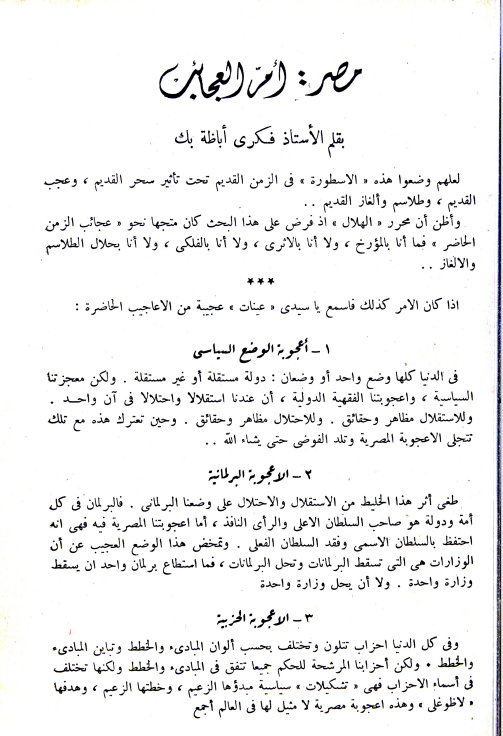 مصر: أمّ العجائب
بقلم الأستاذ فكرى أباظة بك
لعلهم وضعوا هذه « الاسطورة » فى الزمن القديم تحت تأثير سحر القديم ، وعجب
القديم ، وطلاسم وألغاز القديم . .
وأظن أن محرر « الهلال » اذ فرض على هذا البحث كان متجها نحو « عجائب الزمن
الحاضر » فما أنا بالمؤرخ ، ولا أنا بالاثرى ، ولا أنا بالفلكى ، ولا أنا بحلال الطلاسم
والالغاز . .
***
اذا كان الامر كذلك فاسمع يا سيدى « عينات » عجيبة من الاعاجيب الحاضرة :
١ - أعجوبة الوضع السياسى
فى الدنيا كلها وضع واحد أو وضعان : دولة مستقلة أو غير مستقلة . ولكن معجزتنا
السياسية ، واعجوبتنا الفقهية الدولية ، أن عندنا استقلالا واحتلالا فى آن واحد .
وللاستقلال مظاهر وحقائق . وللاحتلال مظاهر وحقائق . وحين تعترك هذه مع تلك
تتجلى الاعجوبة المصرية وتلد الفوضى حتى يشاء الله . .
٢ - الاعجوبة البرلمانية
طغى أثر هذا الخليط من الاستقلال والاحتلال على وضعنا البرلمانى . فالبرلمان فى كل
أمة ودولة هو صاحب السلطان الاعلى والرأى النافذ ، أما اعجوبتنا المصرية فيه فهى انه
احتفظ بالسلطان الاسمى وفقد السلطان الفعلى . وتمخض هذا الوضع العجيب عن أن
الوزارات هى التى تسقط البرلمانات وتحل البرلمانات ، فما استطاع برلمان واحد ان يسقط
وزارة واحدة . ولا أن يحل وزارة واحدة
٣ - الاعجوبة الحزبية
وفى كل الدنيا احزاب تتلون وتختلف بحسب ألوان المبادىء والخطط وتباين المبادىء
والخطط . ولكن أحزابنا المرشحة للحكم جميعا تتفق فى المبادىء والخطط ولكنها تختلف
فى أسماء الاحزاب فهى « تشكيلات » سياسية مبدؤها الزعيم ، وخطتها الزعيم ، وهدفها
« لاظوغلى » وهذه اعجوبة مصرية لا مثيل لها فى العالم أجمع